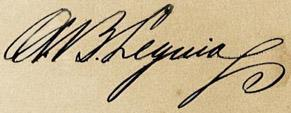 A. B. Leguia